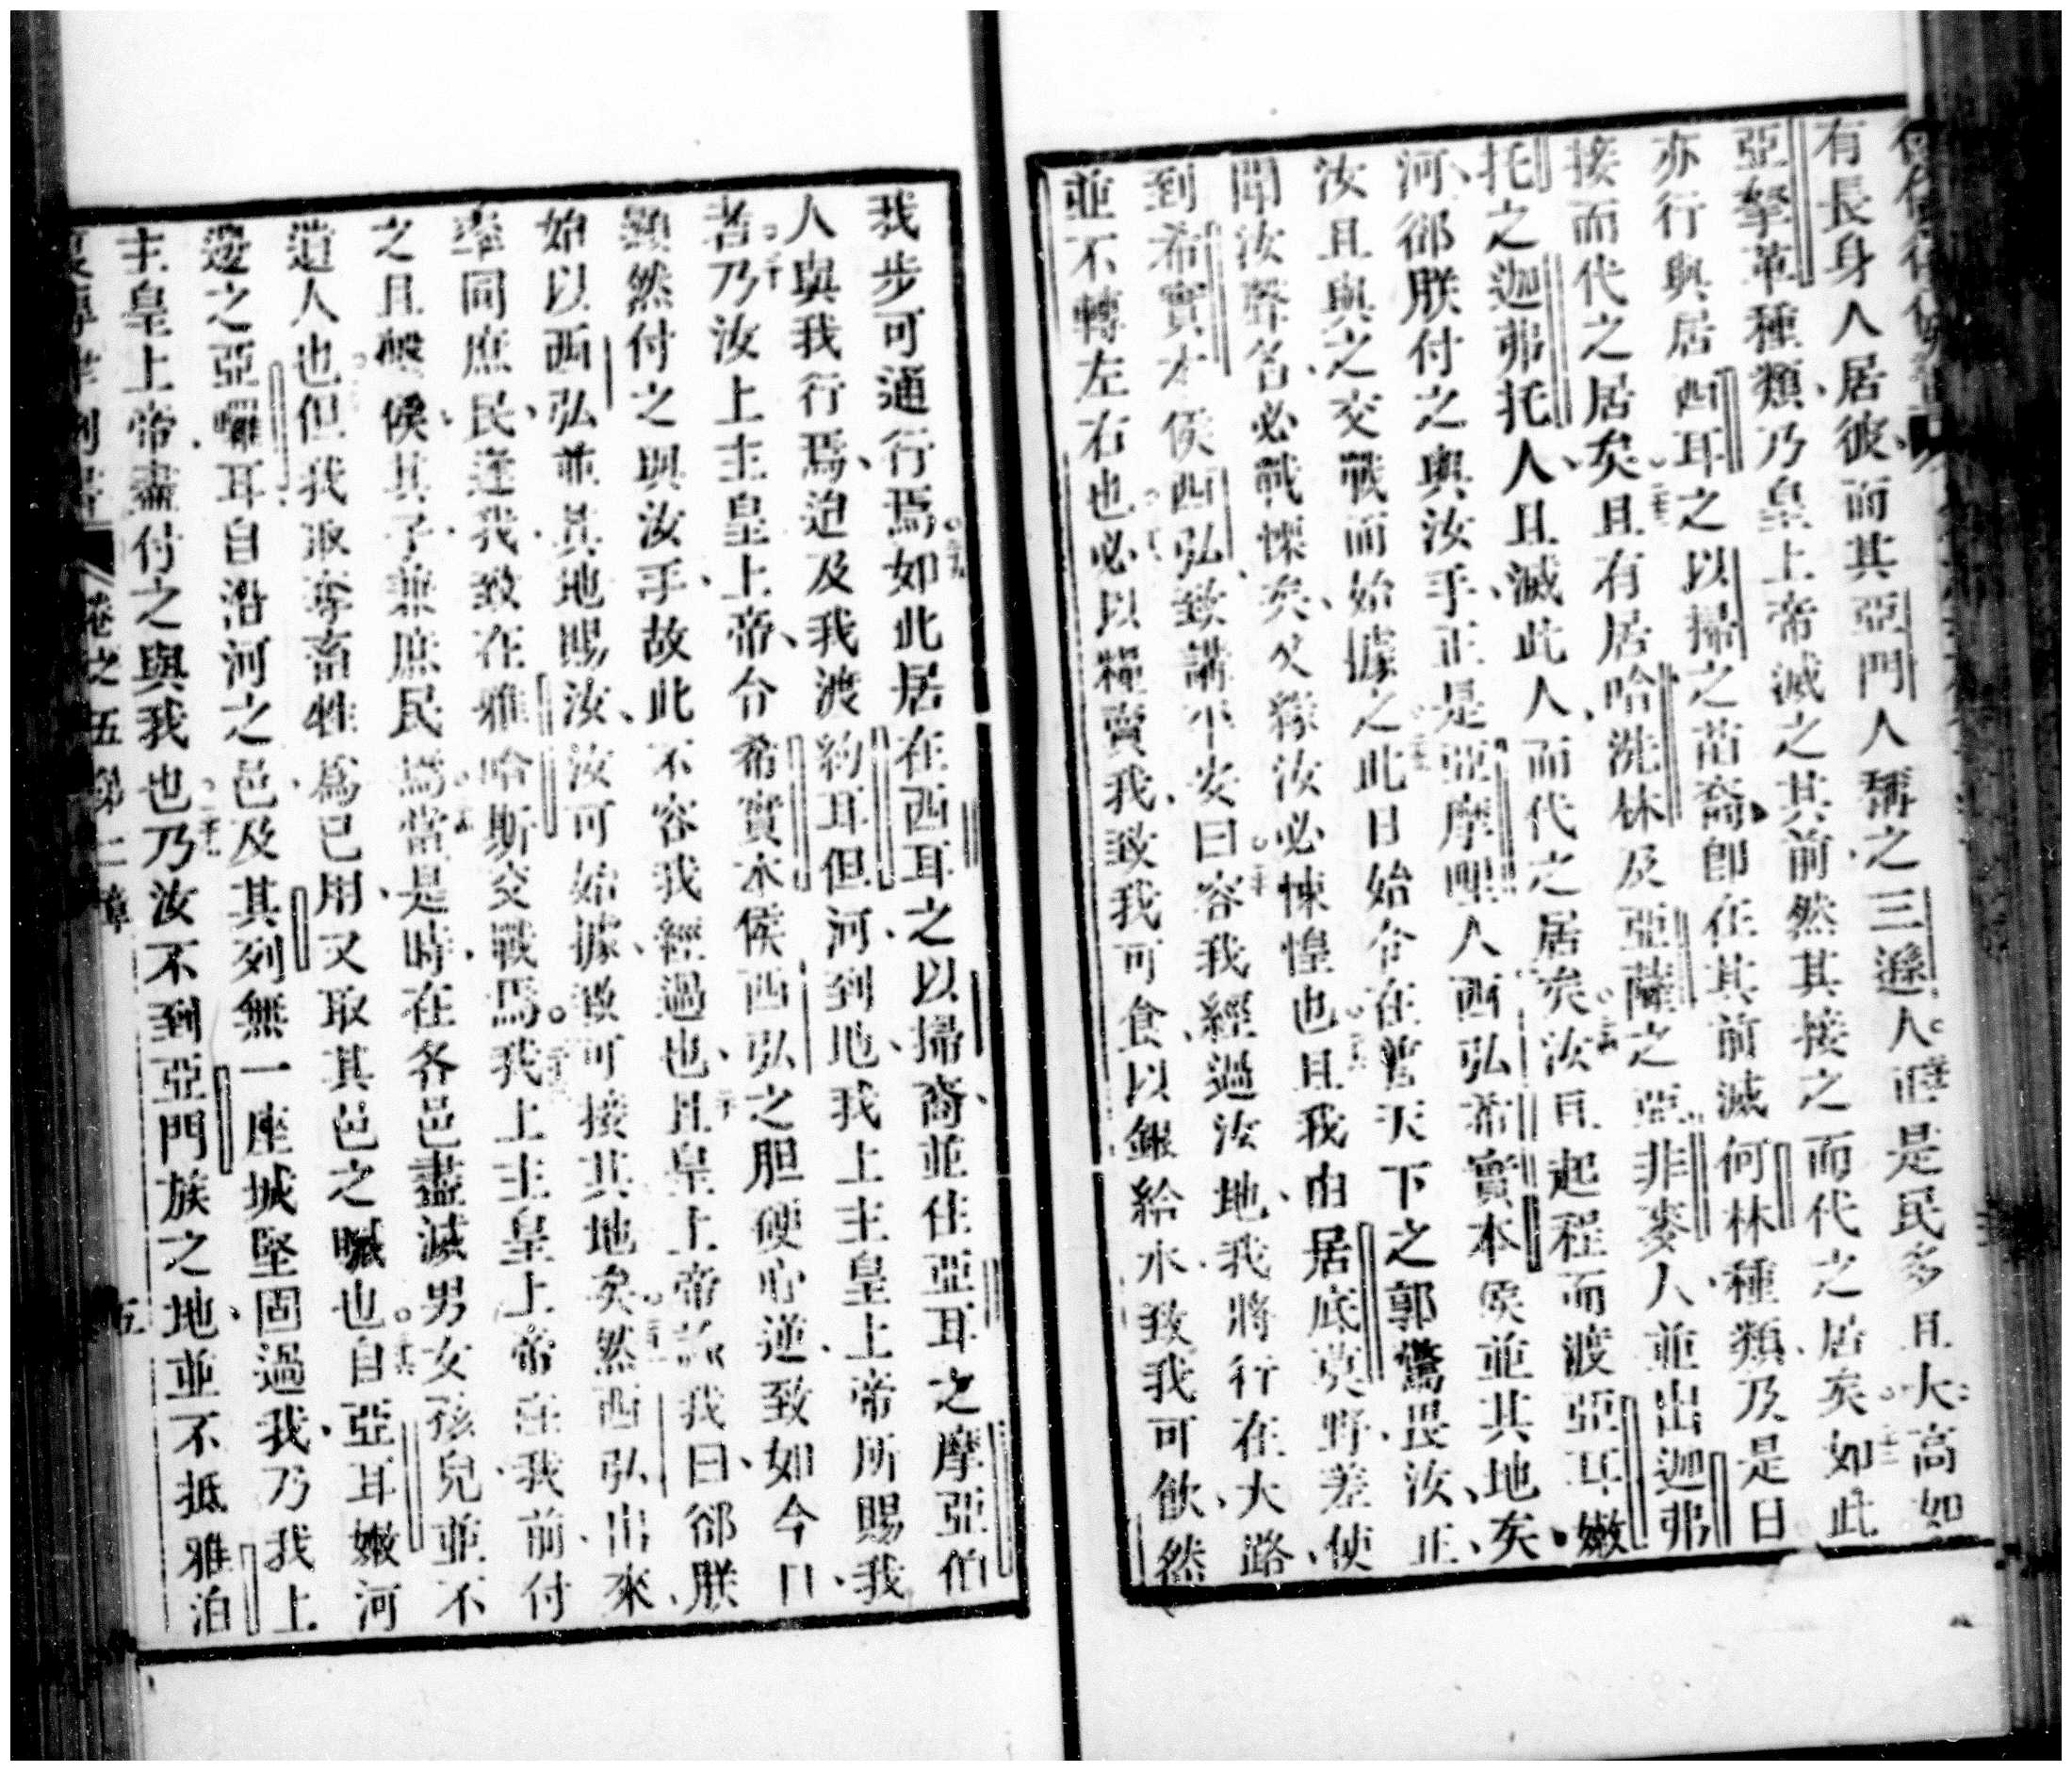 有長身人居彼而其亞門人稱之三遜人正是民多且大高如
亞拏革種類乃皇上帝滅之其前然其接之而代之居矣如此
亦行與居西耳之以掃之苗裔卽在其前滅何林種類及是日
接而代之居矣且有居哈洗林及亞薩之亞非麥人並出迦弗
托之迦弗托人且滅此人而代之居矣汝且起程而渡亞耳嫩
河郤朕付之與汝手正是亞摩哩人西弘希實本侯並其地矣
汝且與之交戰而始據之此日始令在普天下之郭驚畏汝正
聞汝聲名必戰慄矣又緣汝必悚惶也且我由居底莫野差使
到希實本侯西弘致講平安曰容我經過汝地我將行在大路
並不轉左右也必以糧賣我致我可食以銀給水致我可飲然
我步可通行焉如此居在西耳之以掃裔並住亞耳之摩亞伯
人與我行焉迨及我渡約耳但河到地我上主皇上帝所賜我
者乃汝上主皇上帝令希實本侯西弘之胆硬心逆致如今日
顯然付之與汝手故此不容我經過也且皇上帝諭我曰郤朕
始以西弘並其地賜汝汝可始據致可接其地矣然西弘出來
率同庶民逢我致在雅哈斯交戰焉我上主皇上帝在我前付
之且譭侯其子兼庶民焉當是時在各邑盡滅男女孩兒並不
遺人也但我取奪畜牲為己用又取其邑之贓也自亞耳嫩河
邊之亞囉耳自沿河之邑及其列無一座城堅固過我乃我上
主皇上帝盡付之與我也乃汝不到亞門族之地並不抵雅泊
卷之五第二章 五